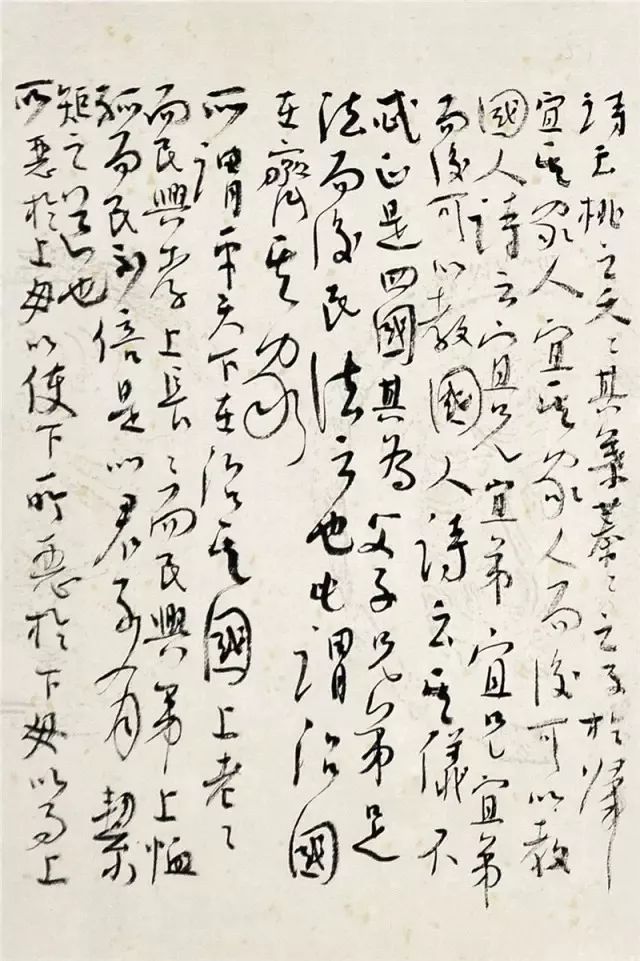 詩云桃之夭〻其葉蓁〻之子於歸
宜其家人宜其家人而後可以教
國人詩云宜兄宜弟宜兄宜弟
而後可以教國人詩云其儀不
忒正是四國其為父子兄弟足
法而後民法之也此謂治國
在齊其家
所謂平天下在治其國上老〻
而民興孝上長〻而民興弟上恤
孤而民不倍是以君子有絜
矩之道也
所惡於上毋以使下所惡於下毋以事上